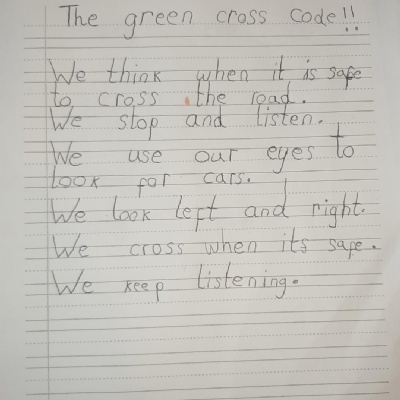 The green cross code!!
We think when it is safe
to cross the road.
We stop and listen.
We use our eyes to
look for cars.
We look left and right.
We cross when its safe.
We keep listening.